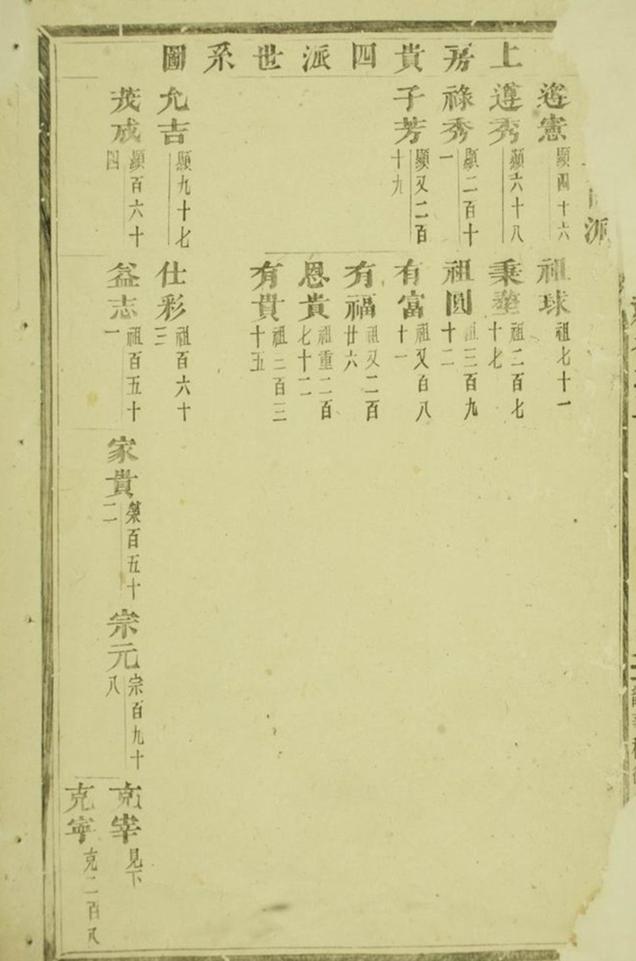 上房貴四派世系圖
憲 顯四十六
遵秀 顯六十八
祿秀 顯二百十一
子芳 顯又二百十九
允吉 顯九十七
茂成 顯百六十四
祖球 祖七十一
秉 祖二百七十七
祖圓 祖三百九十二
有富 祖又百八十一
有福 祖又二百廿六
恩貴 祖重二百七十二
有貴 祖三百三十五
仕彩 祖百六十三
益志 祖百五十一
家貴 榮百五十二
宗元 宗百九十八
克宰 見下
克寧 克二百八
派